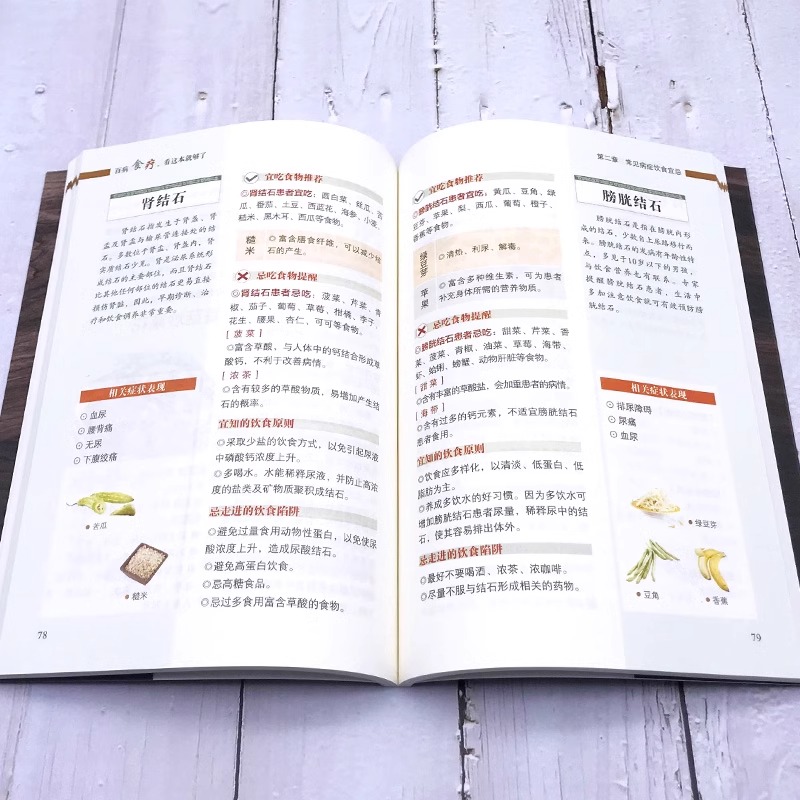 百病食疗,看这本就够了
肾结石
肾结石指发生于肾盏、肾
盂及肾盂与输尿管连接处的结
石。多数位于肾盂、肾盏内,肾
实质结石少见。肾是泌尿系统形
成结石的主要部位,而且肾结石
比其他任何部位的结石更易直接
损伤肾脏,因此,早期诊断、治
疗和饮食调养非常重要。
相关症状表现
⊙血尿
⊙腰背痛
⊙无尿
⊙下腹绞痛
●苦瓜
●糙米
78
宜吃食物推荐
◎肾结石患者宜吃:圆白菜、丝瓜、苦
瓜、番茄、土豆、西蓝花、海参、小麦、
糙米、黑木耳、西瓜等食物。
糙米
◎富含膳食纤维,可以减少结
石的产生。
忌吃食物提醒
◎肾结石患者忌吃:菠菜、芹菜、青
椒、茄子、葡萄、草莓、柑橘、李子、
花生、腰果、杏仁、可可等食物。
[菠菜]
◎富含草酸,与人体中的钙结合形成草
酸钙,不利于改善病情。
[浓茶]
◎含有较多的草酸物质,易增加产生结
石的概率。
宜知的饮食原则
◎采取少盐的饮食方式,以免引起尿液
中磷酸钙浓度上升。
◎多喝水。水能稀释尿液,并防止高浓
度的盐类及矿物质聚积成结石。
忌走进的饮食陷阱
◎避免过量食用动物性蛋白,以免使尿
酸浓度上升,造成尿酸结石。
◎避免高蛋白饮食。
◎忌高糖食品。
◎忌过多食用富含草酸的食物。
第二章 常见病症饮食宜忌
宜吃食物推荐
◎膀胱结石患者宜吃:黄瓜、豆角、绿
豆芽、苹果、梨、西瓜、葡萄、橙子、
香蕉等食物。
绿豆芽
◎清热、利尿、解毒。
苹果
◎富含多种维生素,可为患者
补充身体所需的营养物质。
忌吃食物提醒
◎膀胱结石患者忌吃:甜菜、芹菜、香
菜、菠菜、青椒、油菜、草莓、海带、
虾、蛤蜊、螃蟹、动物肝脏等食物。
[甜菜]
◎含有丰富的草酸盐,会加重患者的病情。
[海带]
◎含有过多的钙元素,不适宜膀胱结石
患者食用。
宜知的饮食原则
◎饮食应多样化,以清淡、低蛋白、低
脂肪为主。
◎养成多饮水的好习惯。因为多饮水可
增加膀胱结石患者尿量,稀释尿中的结
石,使其容易排出体外。
忌走进的饮食陷阱
◎最好不要喝酒、浓茶、浓咖啡。
◎尽量不服与结石形成相关的药物。
膀胱结石
膀胱结石是指在膀胱内形
成的结石,少数自上尿路移行而
来。膀胱结石的发病有年龄性特
点,多见于10岁以下的男孩,
与饮食营养也有联系。专家
提醒膀胱结石患者,生活中
多加注意饮食就可有效预防膀
胱结石。
相关症状表现
⊙排尿障碍
⊙尿痛
⊙血尿
●绿豆芽
●豆角
●香蕉
79